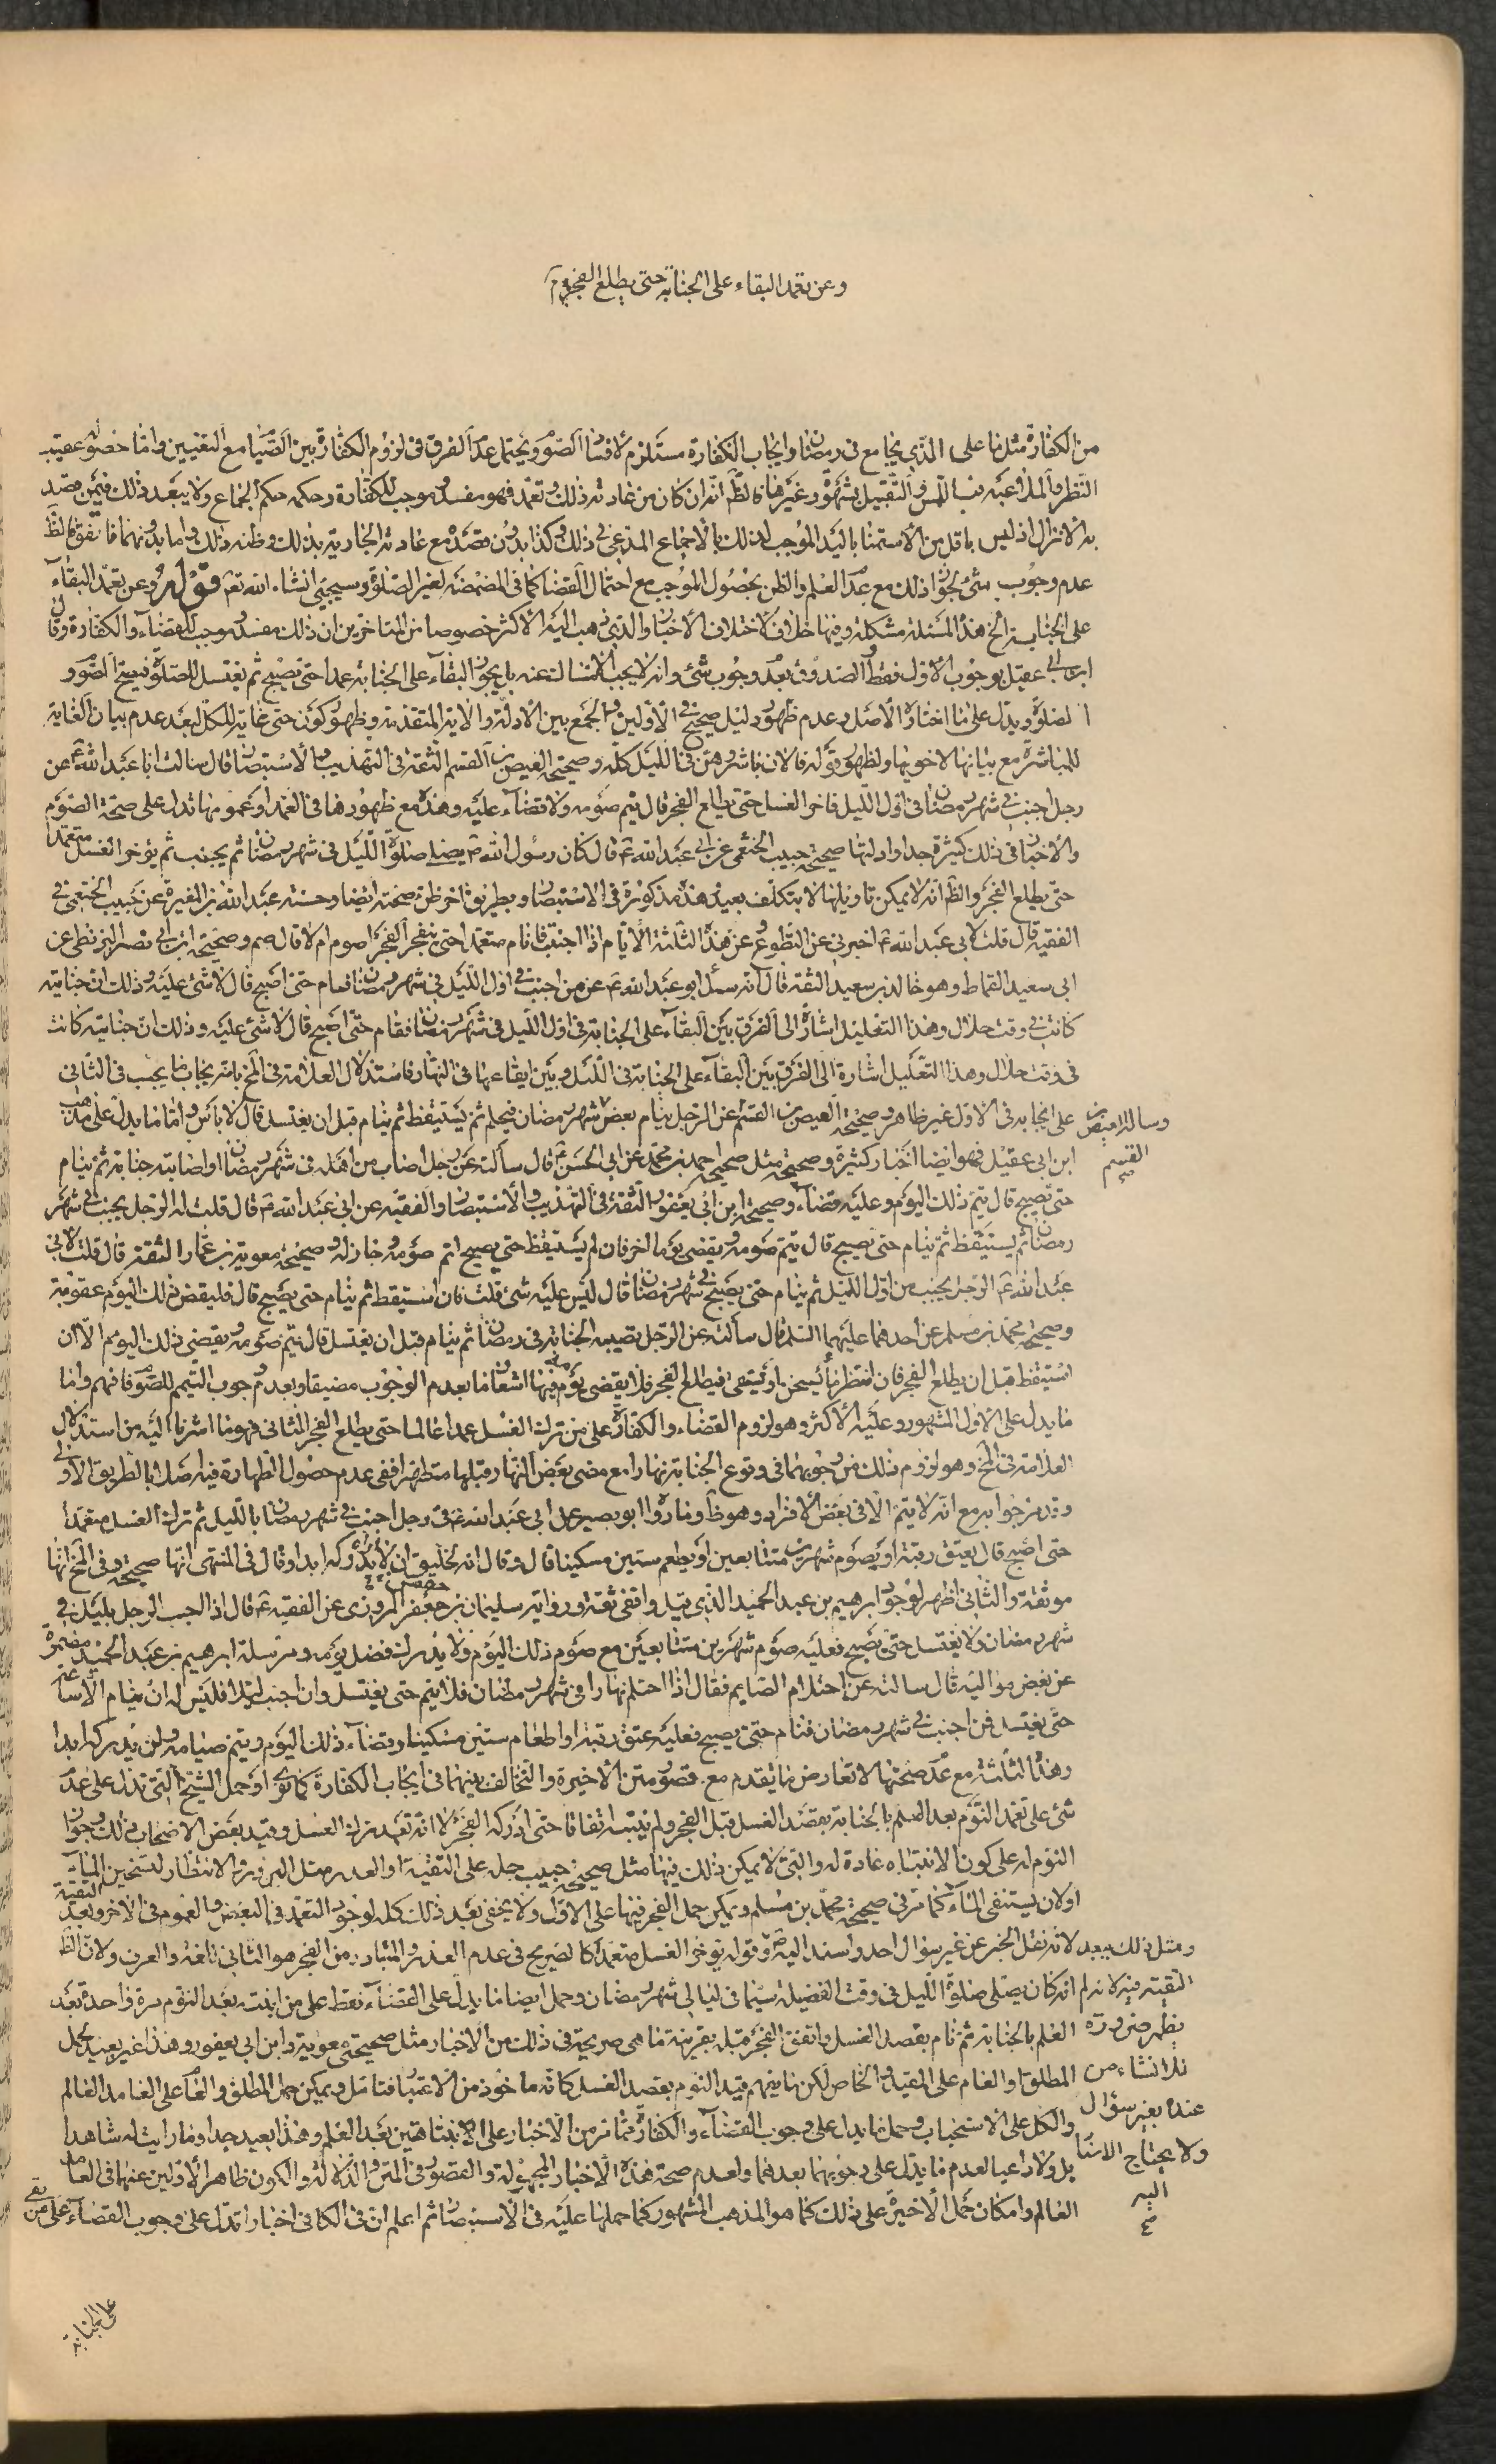 وعن تعمد البقاء على الجنابة حتى يطلع الفجر
من الكفارة مثل ما على الذي يجامع في رمضان وايجاب الكفارة مستلزم لافساد الصوم ويحتمل عدم الفرق في لزوم الكفارة بين الصيام مع التعيين واما حصوله عقيب
النظر والملاعبة من اللمس والتقبيل بشهوة وغيرها فالظ انه ان كان من عادته ذلك وتعمد فهو مفسد وموجب للكفارة وحكمه حكم الجماع ولا يبعد ذلك فيمن قصد
به الانزال اذ ليس باقل من الاستمناء باليد الموجب لذلك بالاجماع المدعى في ذلك وكذا بدون قصده مع عادته الجارية بذلك وظنه ذلك واما بدونهما فاتفق فالظ
عدم وجوب شئ لجواز ذلك مع عدم العلم والظن بحصول الموجب مع احتمال القضاء كما في المضمضة لغير الصلوة وسيجيئ انشاء الله تعم قوله وعن تعمد البقاء
على الجنابة الخ هذه المسئلة مشكلة وفيها خلاف لاختلاف الاخبار والذي ذهب اليه الاكثر خصوصا من المتاخرين ان ذلك مفسد وموجب للقضاء والكفارة وقال
ابن ابي عقيل بوجوب الاول فقط والصدوق بعدم وجوب شئ وانه لا يجب الامساك عنه بل يجوز البقاء على الجنابة عمدا حتى يصبح ثم يغتسل للصلوة فيصح الصوم و
الصلوة ويدل على ما اختاره الاصل وعدم ظهور دليل صحيح في الاولين والجمع بين الادلة والاية المتقدمة وظهور كون حتى غاية للكل لبعد عدم بيان الغاية
للمباشرة مع بيانها لاخويها ولظهور قوله فالان باشروهن في الليل كله وصحيحة العيص بن القسم الثقة في التهذيب والاستبصار قال سالت ابا عبد الله ع عن
رجل اجنب في شهر رمضان في اول الليل فاخر الغسل حتى يطلع الفجر قال يتم صومه ولا قضاء عليه وهذه مع ظهورها في العمد او عمومها تدل على صحة الصوم
والاخبار في ذلك كثيرة جدا وادلتها صحيحة حبيب الخثعمي عن ابي عبد الله ع قال كان رسول الله ص يصلي صلوة الليل في شهر رمضان ثم يجنب ثم يؤخر الغسل متعمدا
حتى يطلع الفجر والظ انه لا يمكن تاويلها الا بتكلف بعيد هذه مذكورة في الاستبصار وبطريق اخر ظن صحته ايضا وحسنة عبد الله بن المغيرة عن حبيب الخثعمي في
الفقيه قال قلت لابي عبد الله ع اخبرني عن التطوع وعن هذه الثلثة الايام اذا اجنبت فانام متعمدا حتى ينفجر الفجر اصوم ام لا قال صم وصحيحة ابن ابي نصر البزنطي عن
ابي سعيد القماط وهو خالد بن سعيد الثقة قال انه سئل ابو عبد الله ع عن من اجنب في اول الليل في شهر رمضان فنام حتى اصبح قال لا شئ عليه وذلك ان جنابته
كانت في وقت حلال وهذا التعليل اشارة الى الفرق بين البقاء على الجنابة في اول الليل في شهر رمضان فنام حتى اصبح قال لا شئ عليه وذلك ان جنابته كانت
في وقت حلال وهذا التعليل اشارة الى الفرق بين البقاء على الجنابة في الليل وبين ايقاعها في النهار فاستدلال العلامة في المخ بانه يجاب ما يجب في الثاني
على ايجابه في الاول غير ظاهر وصحيحة العيص بن القسم عن الرجل ينام بعض شهر رمضان فيحلم ثم يستيقظ ثم ينام قبل ان يغتسل قال لا باس واما ما يدل على مذهب
وساله العيص بن
القسم
صح
ابن ابي عقيل فهو ايضا اخبار كثيرة وصحيحة مثل صحيحة احمد بن محمد عن ابي الحسن ع قال سألته عن رجل اصاب من اهله في شهر رمضان او اصابته جنابة ثم ينام
حتى يصبح قال يتم ذلك اليوم وعليه قضاء وصحيحة ابن ابي يعفور الثقة في التهذيب والاستبصار والفقيه عن ابي عبد الله ع قال قلت له الرجل يجنب في شهر
رمضان ثم يستيقظ ثم ينام حتى يصبح قال يتم صومه ويقضي يوما اخر فان لم يستيقظ حتى يصبح اتم صومه وجاز له وصحيحة معوية بن عمار الثقة قال قلت لابي
عبد الله ع الرجل يجنب من اول الليل ثم ينام حتى يصبح في شهر رمضان قال ليس عليه شئ قلت فان استيقظ ثم ينام حتى يصبح قال فليقض ذلك اليوم عقوبة
وصحيحة محمد بن مسلم عن احدهما عليهما السلم قال سألته عن الرجل تصيبه الجنابة في رمضان ثم ينام قبل ان يغتسل قال يتم صومه ويقضي ذلك اليوم الا ان
استيقظ قبل ان يطلع الفجر فان انتظر ماء يسخن او يستقى فيطلع الفجر فلا يقضي يومه فيها اشعار ما بعدم الوجوب مضيقا وبعدم وجوب التيمم للصوم فافهم واما
ما يدل على الاول المشهور وعليه الاكثر وهو لزوم القضاء والكفارة على من ترك الغسل عمدا عالما حتى يطلع الفجر الثاني فهو ما اشرنا اليه من استدلال
العلامة في المخ وهو لزوم ذلك من وجوبهما في وقوع الجنابة نهارا مع مضى بعض النهار قبلها متطهرا ففي عدم حصول الطهارة فيه اصلا بالطريق الاولى
وقد مر جوابه مع انه لا يتم الا في بعض الافراد وهو ظ وما رواه ابو بصير عن ابي عبد الله ع في رجل اجنب في شهر رمضان بالليل ثم ترك الغسل متعمدا
حتى اصبح قال يعتق رقبة او يصوم شهرين متتابعين او يطعم ستين مسكينا قال وقال انه لخليق ان لا يدركه ابدا وقال في المنتهى انها صحيحة وفي المخ انها
موثقة والثاني اظهر لوجود ابرهيم بن عبد الحميد الذي قيل واقفي ثقة ورواية سليمان بن حفص جعفر المروزي عن الفقيه ع قال اذا اجنب الرجل بليل في
شهر رمضان ولا يغتسل حتى يصبح فعليه صوم شهرين متتابعين مع صوم ذلك اليوم ولا يدرك فضل يومه ومرسلة ابرهيم بن عبد الحميد مضمرة
عن بعض مواليه قال سالته عن احتلام الصايم فقال اذا احتلم نهارا في شهر رمضان فلا ينم حتى يغتسل وان اجنب ليلا فليس له ان ينام الا ساعة
حتى يغتسل فمن اجنب في شهر رمضان فنام حتى يصبح فعليه عتق رقبة او اطعام ستين مسكينا وقضاء ذلك اليوم ويتم صيامه ولن يدركه ابدا
وهذه الثلثة مع عدم صحتها لا تعارض ما يقدم مع قصور متن الاخيرة والتخالف بينهما في ايجاب الكفارة كما ترى او حمل الشيخ التي تدل على عدم
شئ على تعمد النوم بعد العلم بالجنابة بقصد الغسل قبل الفجر ولم ينتبه اتفاقا حتى ادركه الفجر لا انه تعمد ترك الغسل وقيد بعض الاصحاب ذلك وجواز
النوم له على كون الانتباه عادة له والتي لا يمكن ذلك فيها مثل صحيحة حبيب حمله على التقية او العذر مثل البرد والانتظار لتسخين الماء
او لان يستقى الماء كما مر في صحيحة محمد بن مسلم ويمكن حمل الفجر فيها على الاول ولا يخفى بعد ذلك كله لوجود التعمد في البعض والعموم في الاخر وبعد التقية
ومثل ذلك يبعد لانه نقل الخبر عن غير سؤال احد واسند اليه ص وقوله يؤخر الغسل متعمدا كالصريح في عدم العذر والمتبادر من الفجر هو الثاني لغة والعرف ولان الظ
انه كان يصلي صلوة الليل في وقت الفضيلة سيما في ليالي شهر رمضان وحمل ايضا ما يدل على القضاء فقط على من انتبه بعد النوم مرة واحدة بعد
العلم بالجنابة ثم نام بقصد الغسل واتفق الفجر قبله بقرينة ما هي صريحة في ذلك من الاخبار مثل صحيحتي معوية وابن ابي يعفور وهذا غير بعيد لحمل
المطلق والعام على المقيد والخاص لكن ما يفهم قيد النوم بقصد الغسل كانه ماخوذ من الاعتبار فتامل ويمكن حمل المطلق والعام على العامد العالم
والكل على الاستحباب وحمل ما يدل على وجوب القضاء والكفارة مما مر من الاخبار على الانتباهتين بعد العلم وهذا بعيد جدا وما رايت له شاهدا
بل ولا داعيا لعدم ما يدل على وجوبهما بعدهما ولعدم صحة هذه الاخبار المجهولة والقصور في المتن والدلالة ولكون ظاهر الاولين عنهما في العامد
العالم وامكان حمل الاخيرة على ذلك كما هو المذهب المشهور كما حملها عليه في الاستبصار ثم اعلم ان في الكافي اخبارا تدل على وجوب القضاء على من بقى
التقية فيه لانه لم
يظهر ضرورة
للانشاء من
عنده بغير سؤال
ولا يحتاج الاسناد
اليه
صح
على الجنابة